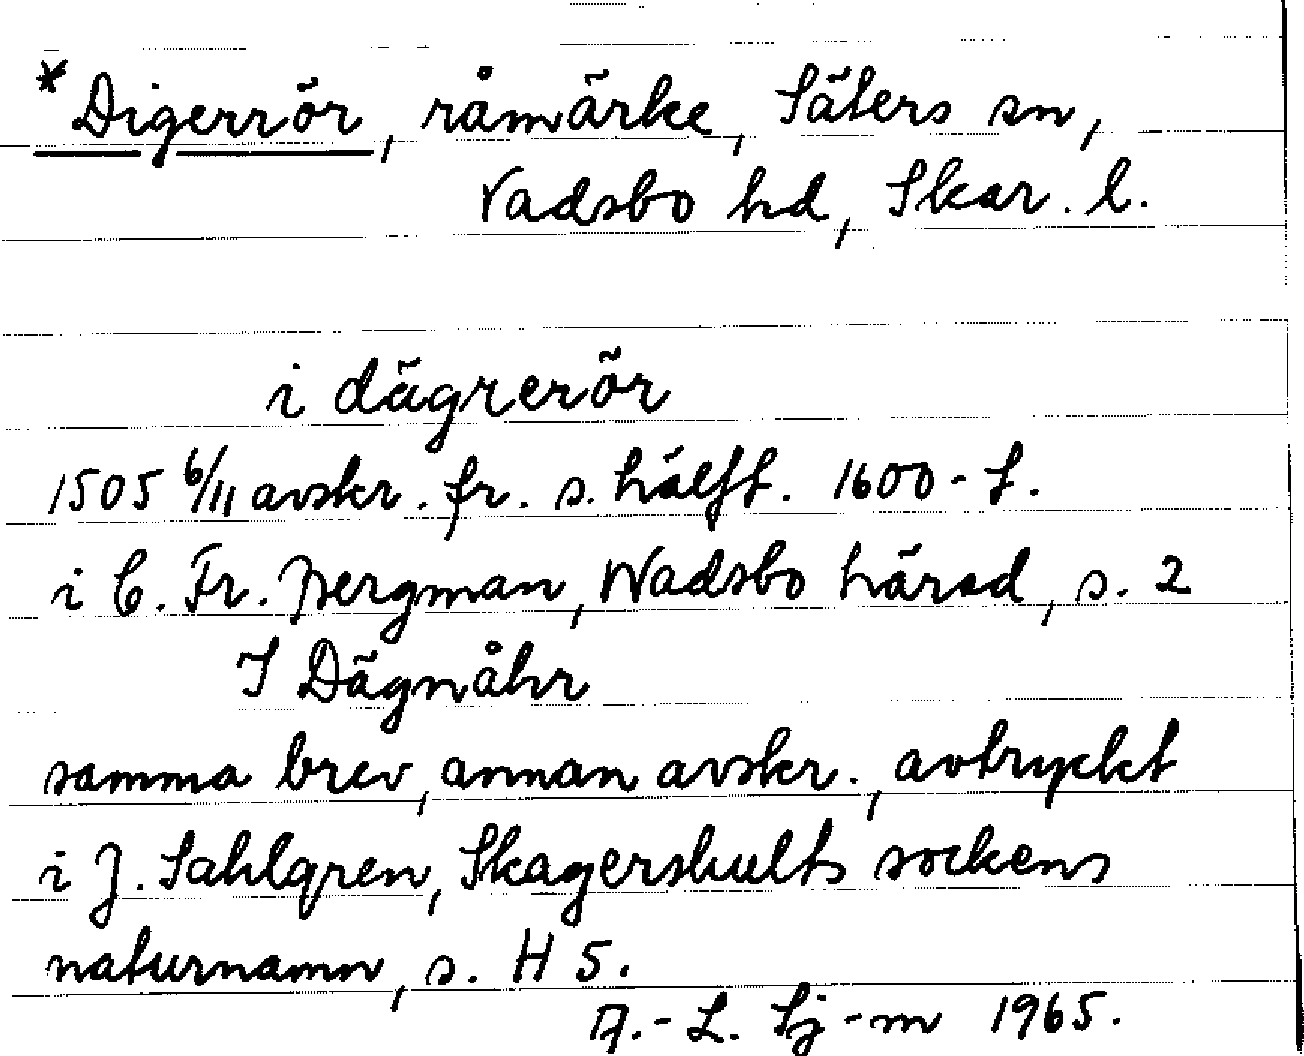 *Digerrör, råmärke, Säters sn,
Vadsbo hd, Skar. l.
i dägrerör
1505 6/11 avskr. fr. s. hälft. 1600-t.
i C. Fr. Bergman, Wadsbo härad, s. 2
I Dägnåhr
samma brev, annan avskr., avtryckt
i J. Sahlgren, Skagershults sockens
naturnamn, s. H 5.
A.-L. Sj-m 1965.